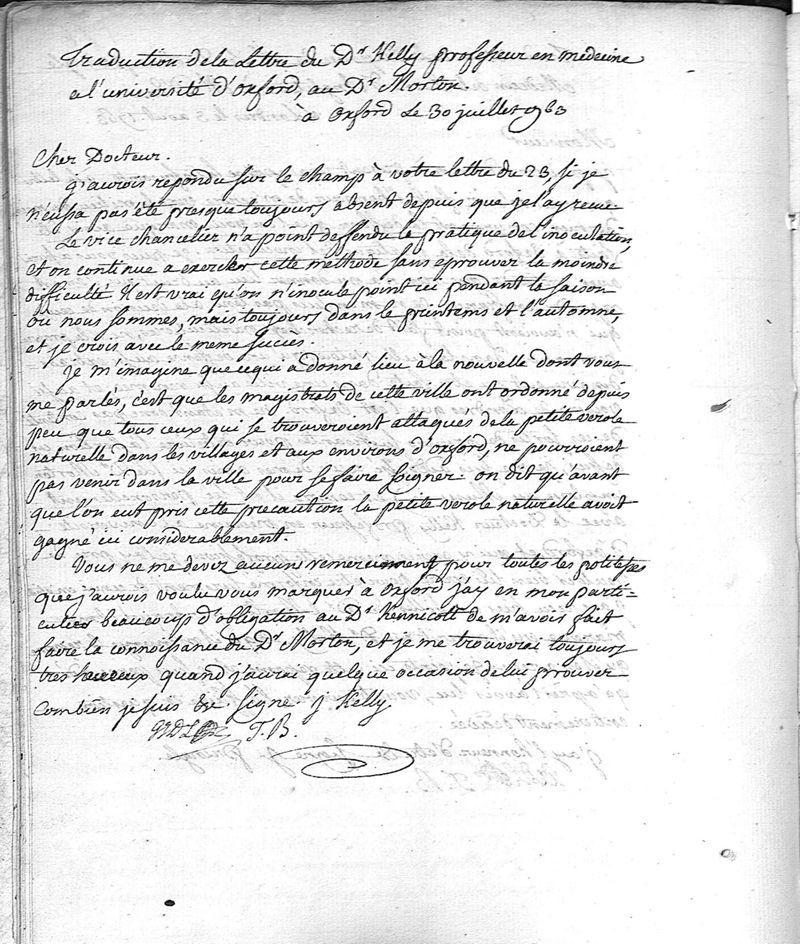 Traduction de la Lettre du Dr Kelly professeur en medecine
a l'université d'oxford, au Dr Morton.
à oxford Le 30 juillet 1763
Cher Docteur.
j'aurois repondu sur le champ à votre lettre du 23, si je
n'eusse pas été presque toujours absent depuis que je l'ay recue.
Le vice chancelier n'a point deffendu la pratique de l'inoculation,
et on continue a exercer cette méthode sans eprouver la moindre
difficulté. Il est vrai qu'on n'inocule point ici pendant la saison
où nous sommes, mais toujours dans le printems et l'automne,
et je crois avec le meme succès.
Je m'imagine que ce qui a donné lieu à la nouvelle dont vous
me parlés, c'est que les magistrets de cette ville ont ordonné depuis
peu que tous ceux qui se trouveroient attaqués de la petite verole
naturelle dans les villages et aux environs d'oxford, ne pourroient
pas venir dans la ville pour se faire soigner. on dit qu'avant
que l'on eut pris cette precaution la petite verole naturelle avoit
gagné ici considerablement.
Vous ne me devez aucun remerciment pour toutes les politesses
que j'aurois voulu vous marquer à oxford j'ay en mon parti=
culier beaucoup d'obligation au Dr Kennicott de m'avoir fait
faire la connoissance du Dr Morton, et je me trouverai toujours
tres heureux quand j'aurai quelque occasion de lui prouver
combien je suis &c. signé. j Kelly.
T. B.